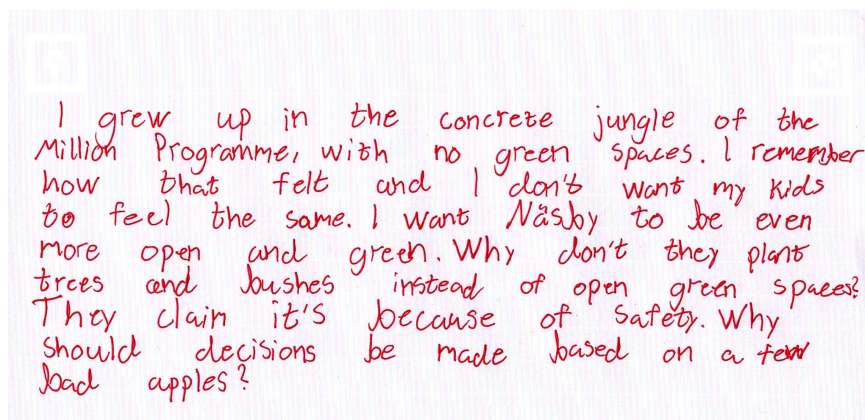 I grew up in the concrete jungle of the
Million Programme, with no green spaces. I remember
how that felt and I don't want my kids
to feel the same. I want Näsby to be even
more open and green. Why don't they plant
trees and bushes instead of open green spaces?
They claim it's because of safety. Why
should decisions be made based on a few
bad apples?